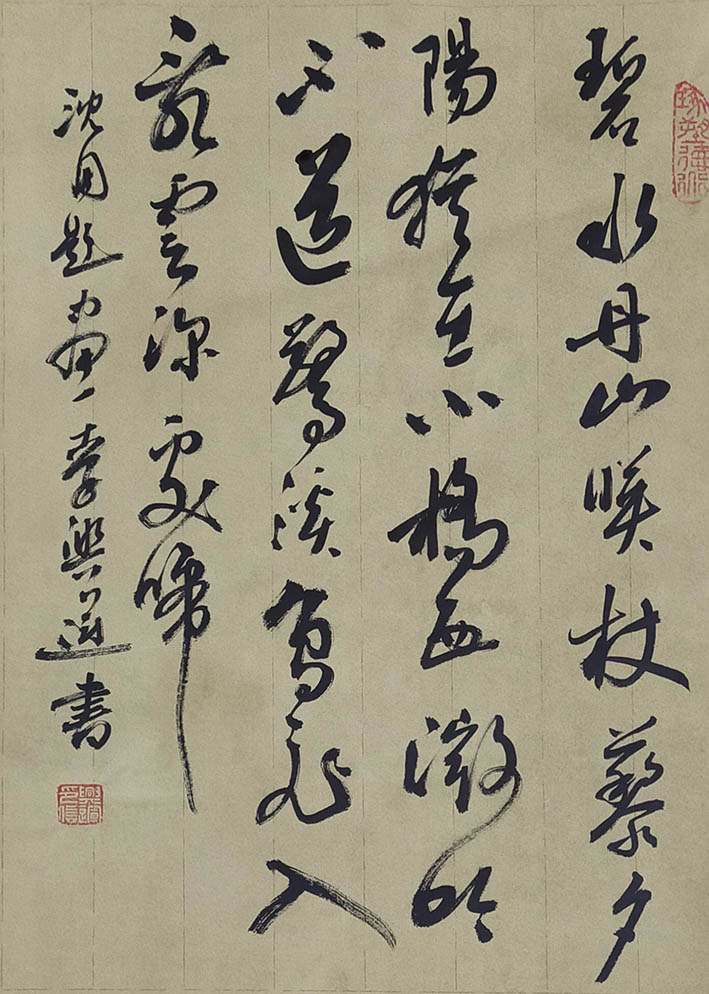 碧水丹山映杖藜夕
陽猶在小橋西微吟
不道驚溪鳥飛入
亂雲深處啼
沈周題畫 李興書